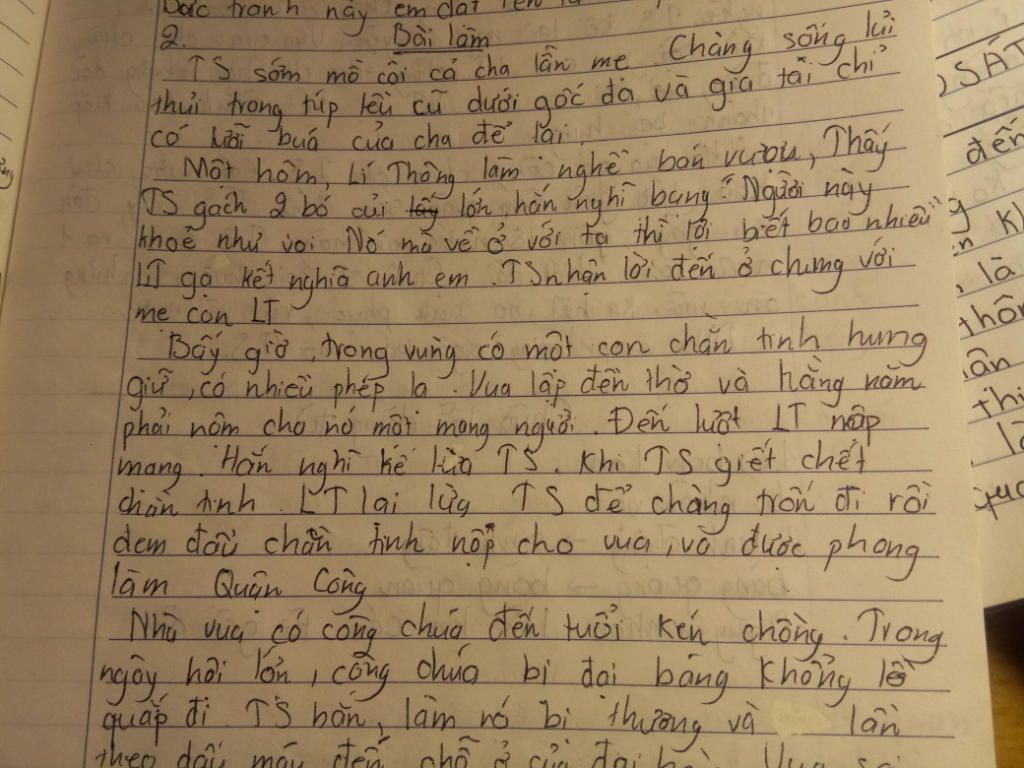 Bức tranh này em đặt tên là
2. Bài làm
TS sớm mồ côi cả cha lẫn mẹ. Chàng sống lủi
thủi trong túp lều cũ dưới gốc đa và gia tài chỉ
có lưỡi buá của cha để lại.
Một hôm, Lí Thông làm nghề bán vượu, Thấy
TS gách 2 bó củi lớn hắn nghĩ bụng "Người này
khoẻ như voi. Nó mà về ở với ta thì lợi biết bao nhiêu"
LT gạ kết nghĩa anh em. TS nhận lời đến ở chung với
mẹ con LT
Bấy giờ, trong vùng có một con chằn tinh hung
giữ, có nhiều phép lạ. Vua lập đền thờ và hằng năm
phải nôm cho nó một mạng người. Đến lượt LT nộp
mạng. Hắn nghĩ kế lừa TS. Khi TS giết chết
chằn tinh. LT lại lừa TS để chàng trốn đi rồi
đem đầu chằn tinh nộp cho vua, và được phong
làm Quận Công
Nhà vua có công chúa đến tuổi kén chồng. Trong
ngày hội lớn, công chúa bị đại bàng khổng lồ
quắp đi. TS bắn, làm nó bị thương và lần
theo dấu máu đến chỗ ở của đại bàng. Vua sai
SÁT
đến
là